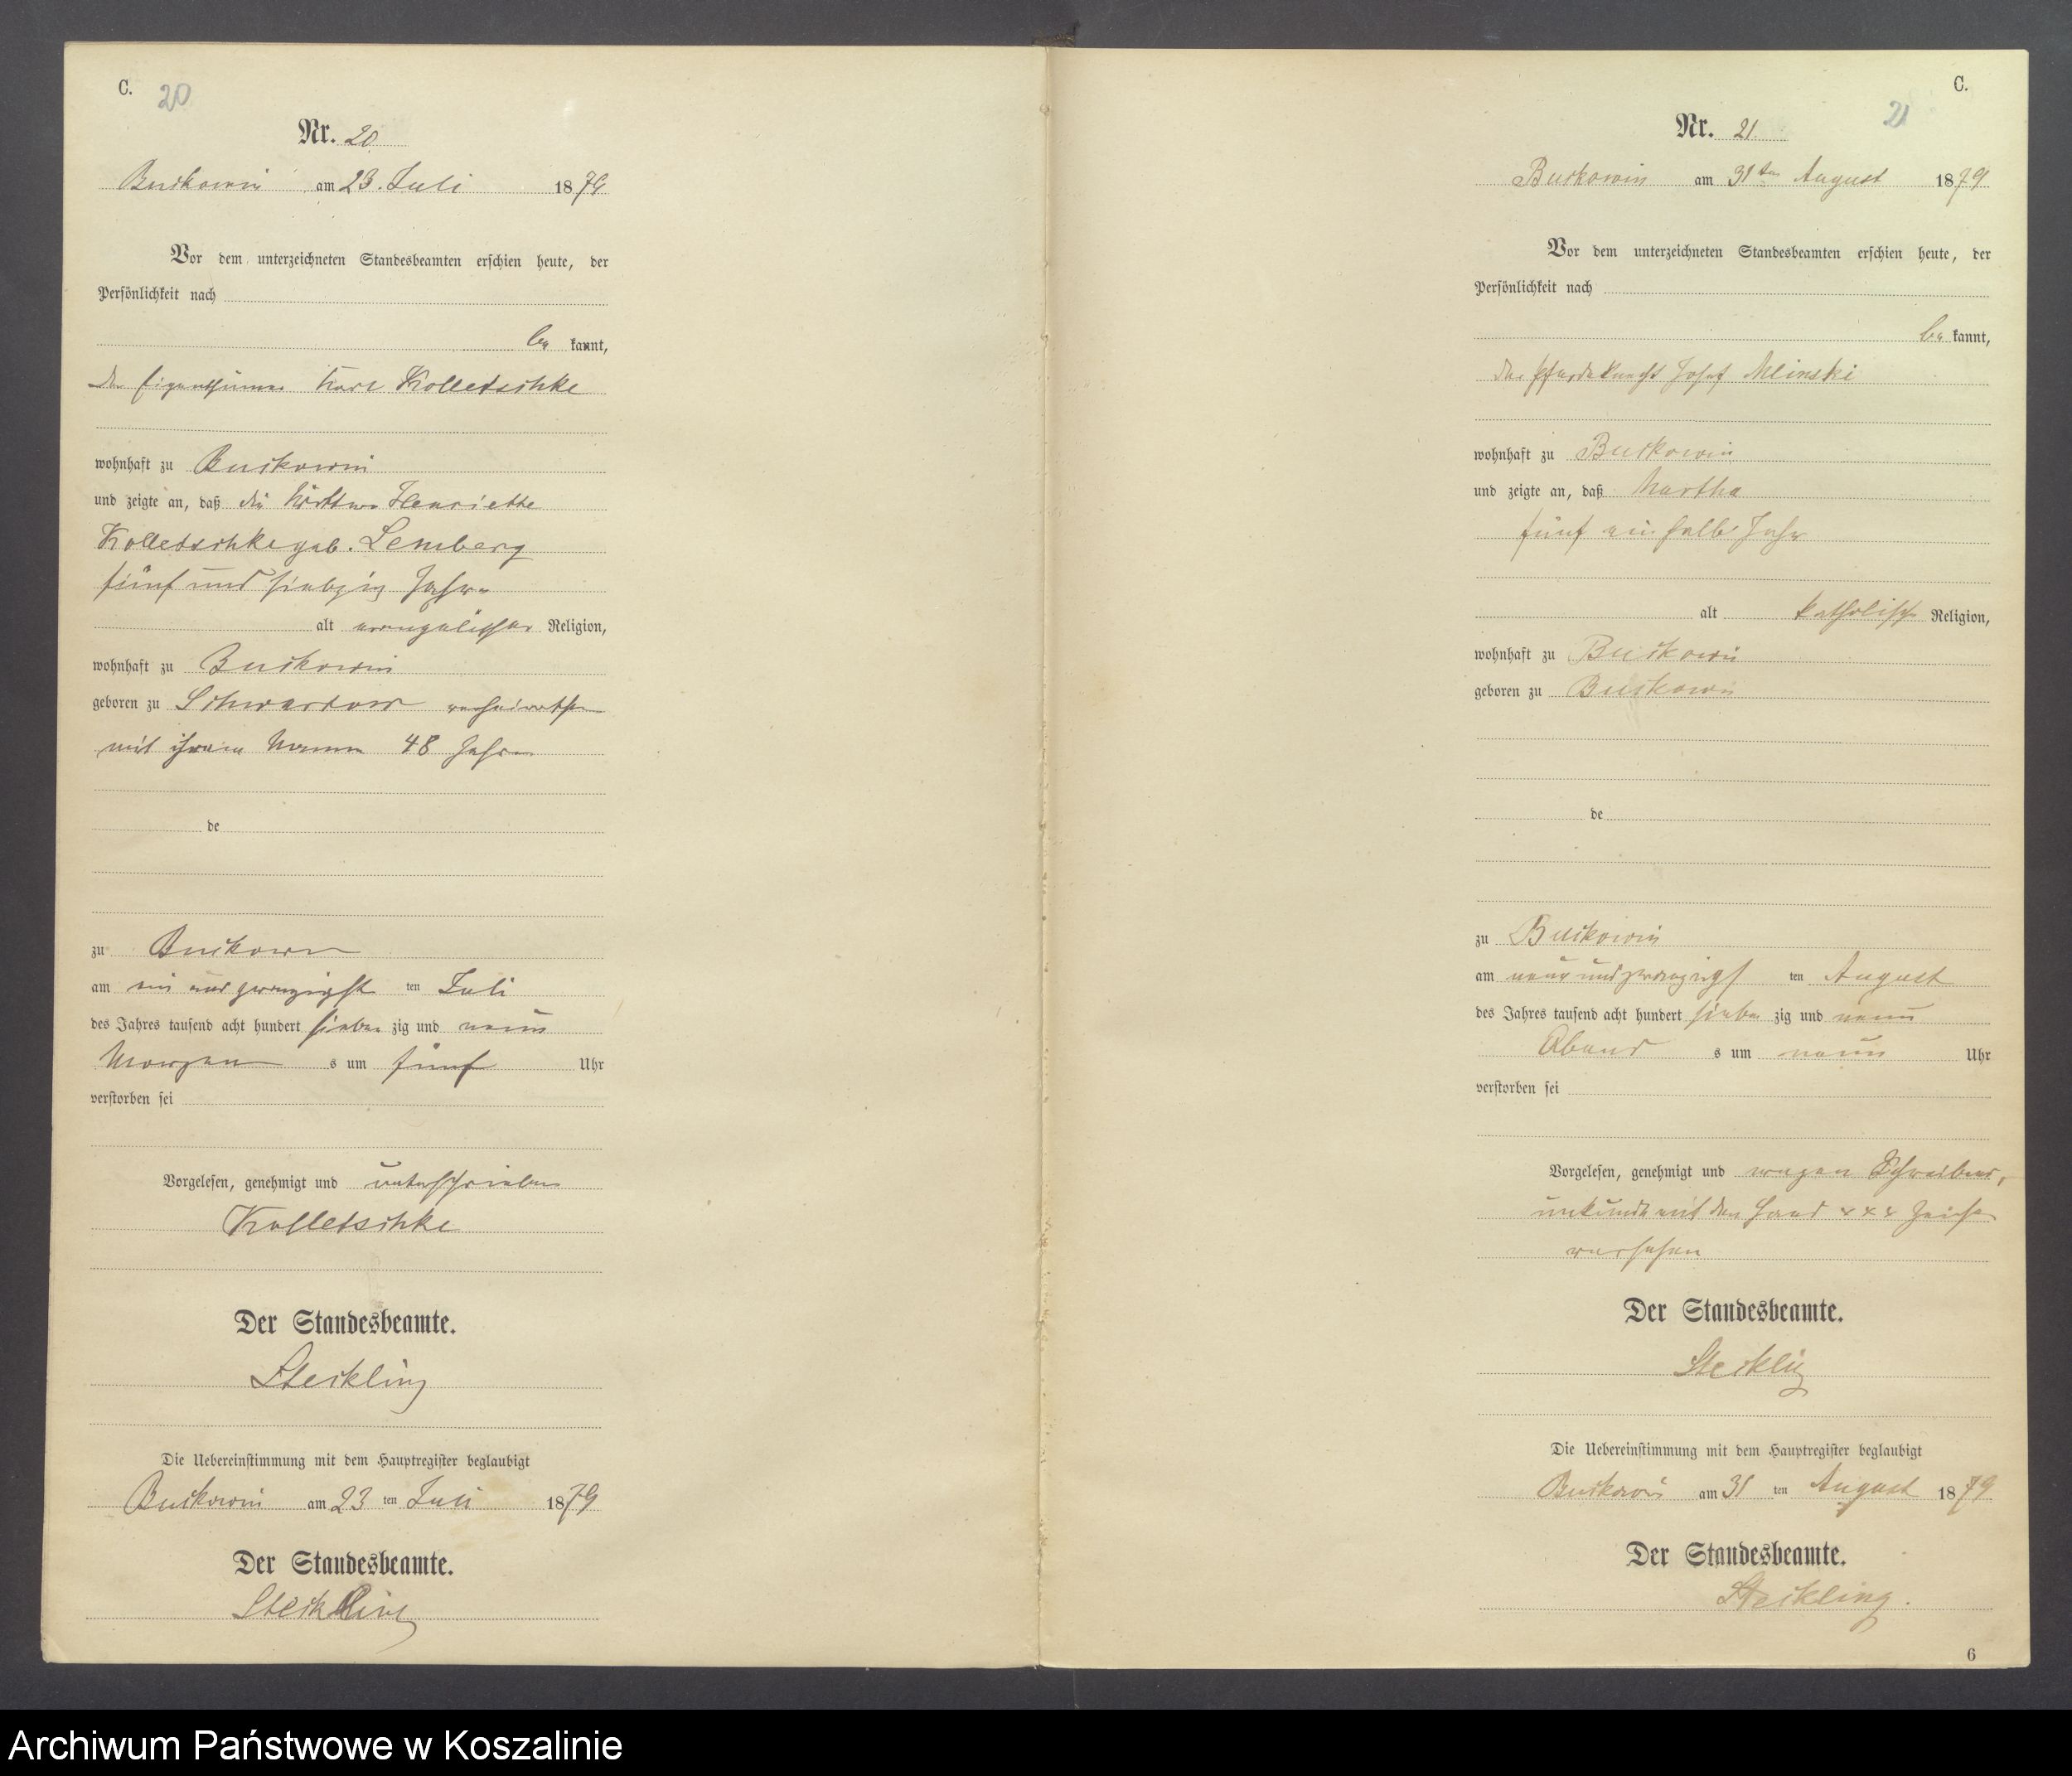 C. 20
Nr. 20
Buckowin am 23. Juli 1879
Vor dem unterzeichneten Standesbeamten erschien heute, der
Persönlichkeit nach
be kannt,
der Eigenthümer Karl Kolletschke
wohnhaft zu Buckowin
und zeigte an, daß die Wittwe Henriette
Kolletschke geb. Lemberg
fünf und siebzig Jahre
alt evangelischer Religion,
wohnhaft zu Buckowin
geboren zu Schwartow verheirathet
mit ihrem Mann 48 Jahre
de
zu Buckowin
am ein und zwanzigst ten Juli
des Jahres tausend acht hundert sieben zig und neun
Morgen s um fünf Uhr
verstorben sei
Vorgelesen, genehmigt und unterschrieben
Kolletschke
Der Standesbeamte.
Steckling
Die Uebereinstimmung mit dem Hauptregister beglaubigt
Buckowin am 23 ten Juli 1879
Der Standesbeamte.
Steckling
C.
21
Nr. 21
Buckowin am 31ten August 1879
Vor dem unterzeichneten Standesbeamten erschien heute, der
Persönlichkeit nach
be kannt,
der Pferdeknecht Josef Mlinski
wohnhaft zu Buckowin
und zeigte an, daß Martha
fünf ein halb Jahr
alt katholisch Religion,
wohnhaft zu Buckowin
geboren zu Buckowin
de
zu Buckowin
am neun und zwanzigst ten August
des Jahres tausend acht hundert sieben zig und neun
Abend s um neun Uhr
verstorben sei
Vorgelesen, genehmigt und wegen Schreibens
unkunde mit der Hand x x x Zeichen
versehen
Der Standesbeamte.
Steckling
Die Uebereinstimmung mit dem Hauptregister beglaubigt
Buckowin am 31 ten August 1879
Der Standesbeamte.
Steckling.
6
Archiwum Państwowe w Koszalinie